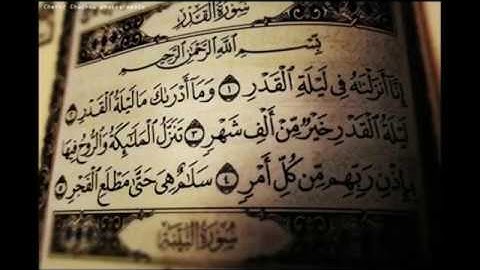 سُورَةُ القَدْرِ
بِسْمِ اللَّهِ الرَّحْمَٰنِ الرَّحِيمِ
إِنَّآ أَنزَلْنَٰهُ فِى لَيْلَةِ ٱلْقَدْرِ ١ وَمَآ أَدْرَىٰكَ مَا لَيْلَةُ ٱلْقَدْرِ ٢
لَيْلَةُ ٱلْقَدْرِ خَيْرٌ مِّنْ أَلْفِ شَهْرٍ ٣ تَنَزَّلُ ٱلْمَلَٰٓئِكَةُ وَٱلرُّوحُ فِيهَا
بِإِذْنِ رَبِّهِم مِّن كُلِّ أَمْرٍ ٤ سَلَٰمٌ هِىَ حَتَّىٰ مَطْلَعِ ٱلْفَجْرِ ٥
سُورَةُ البَيِّنَةِ